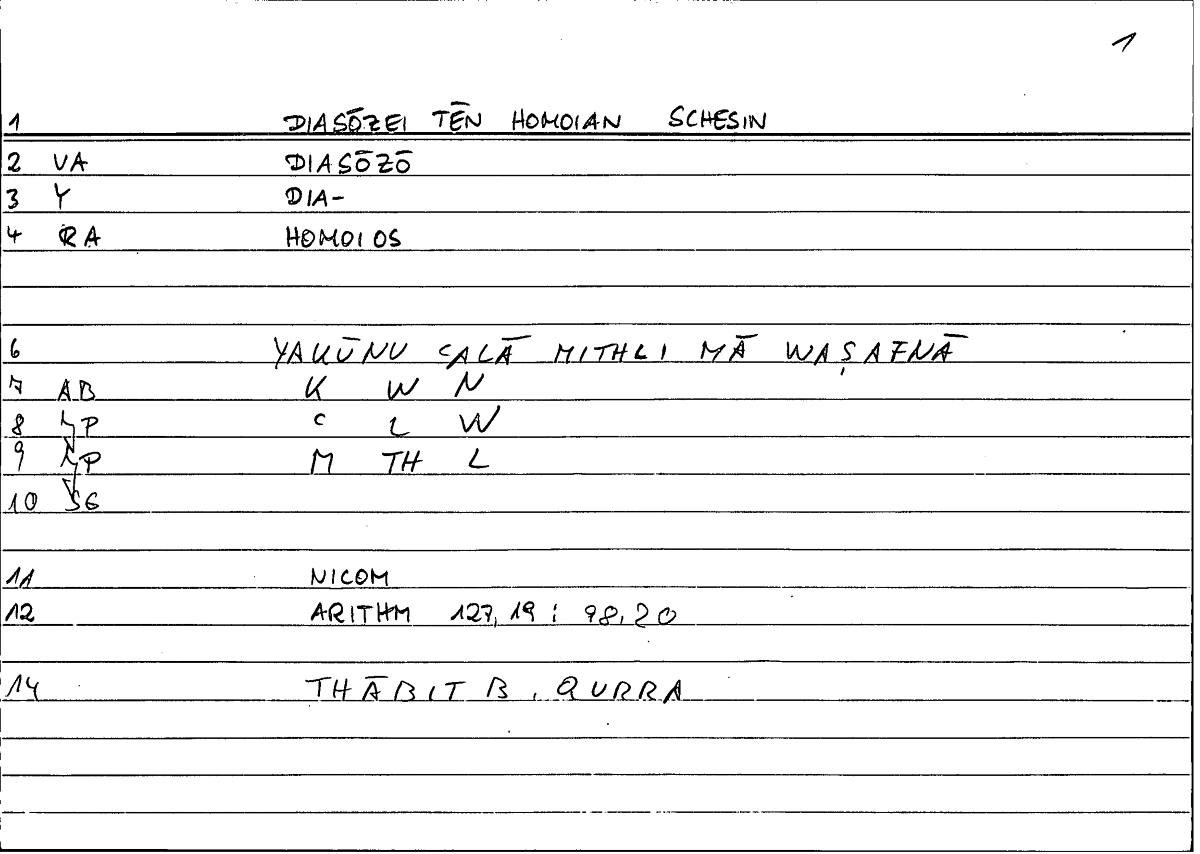 1
1 DIASŌZEI TĒN HOMOIAN SCHESIN
2 VA DIASŌZŌ
3 Y DIA-
4 RA HOMOIOS
6 YAKŪNU ʿALĀ MITHLI MĀ WAṢAFNĀ
7 AB K W N
8 P ʿ L W
9 P M TH L
10 SG
11 NICOM
12 ARITHM 127,19 : 98,20
14 THĀBIT B. QURRA